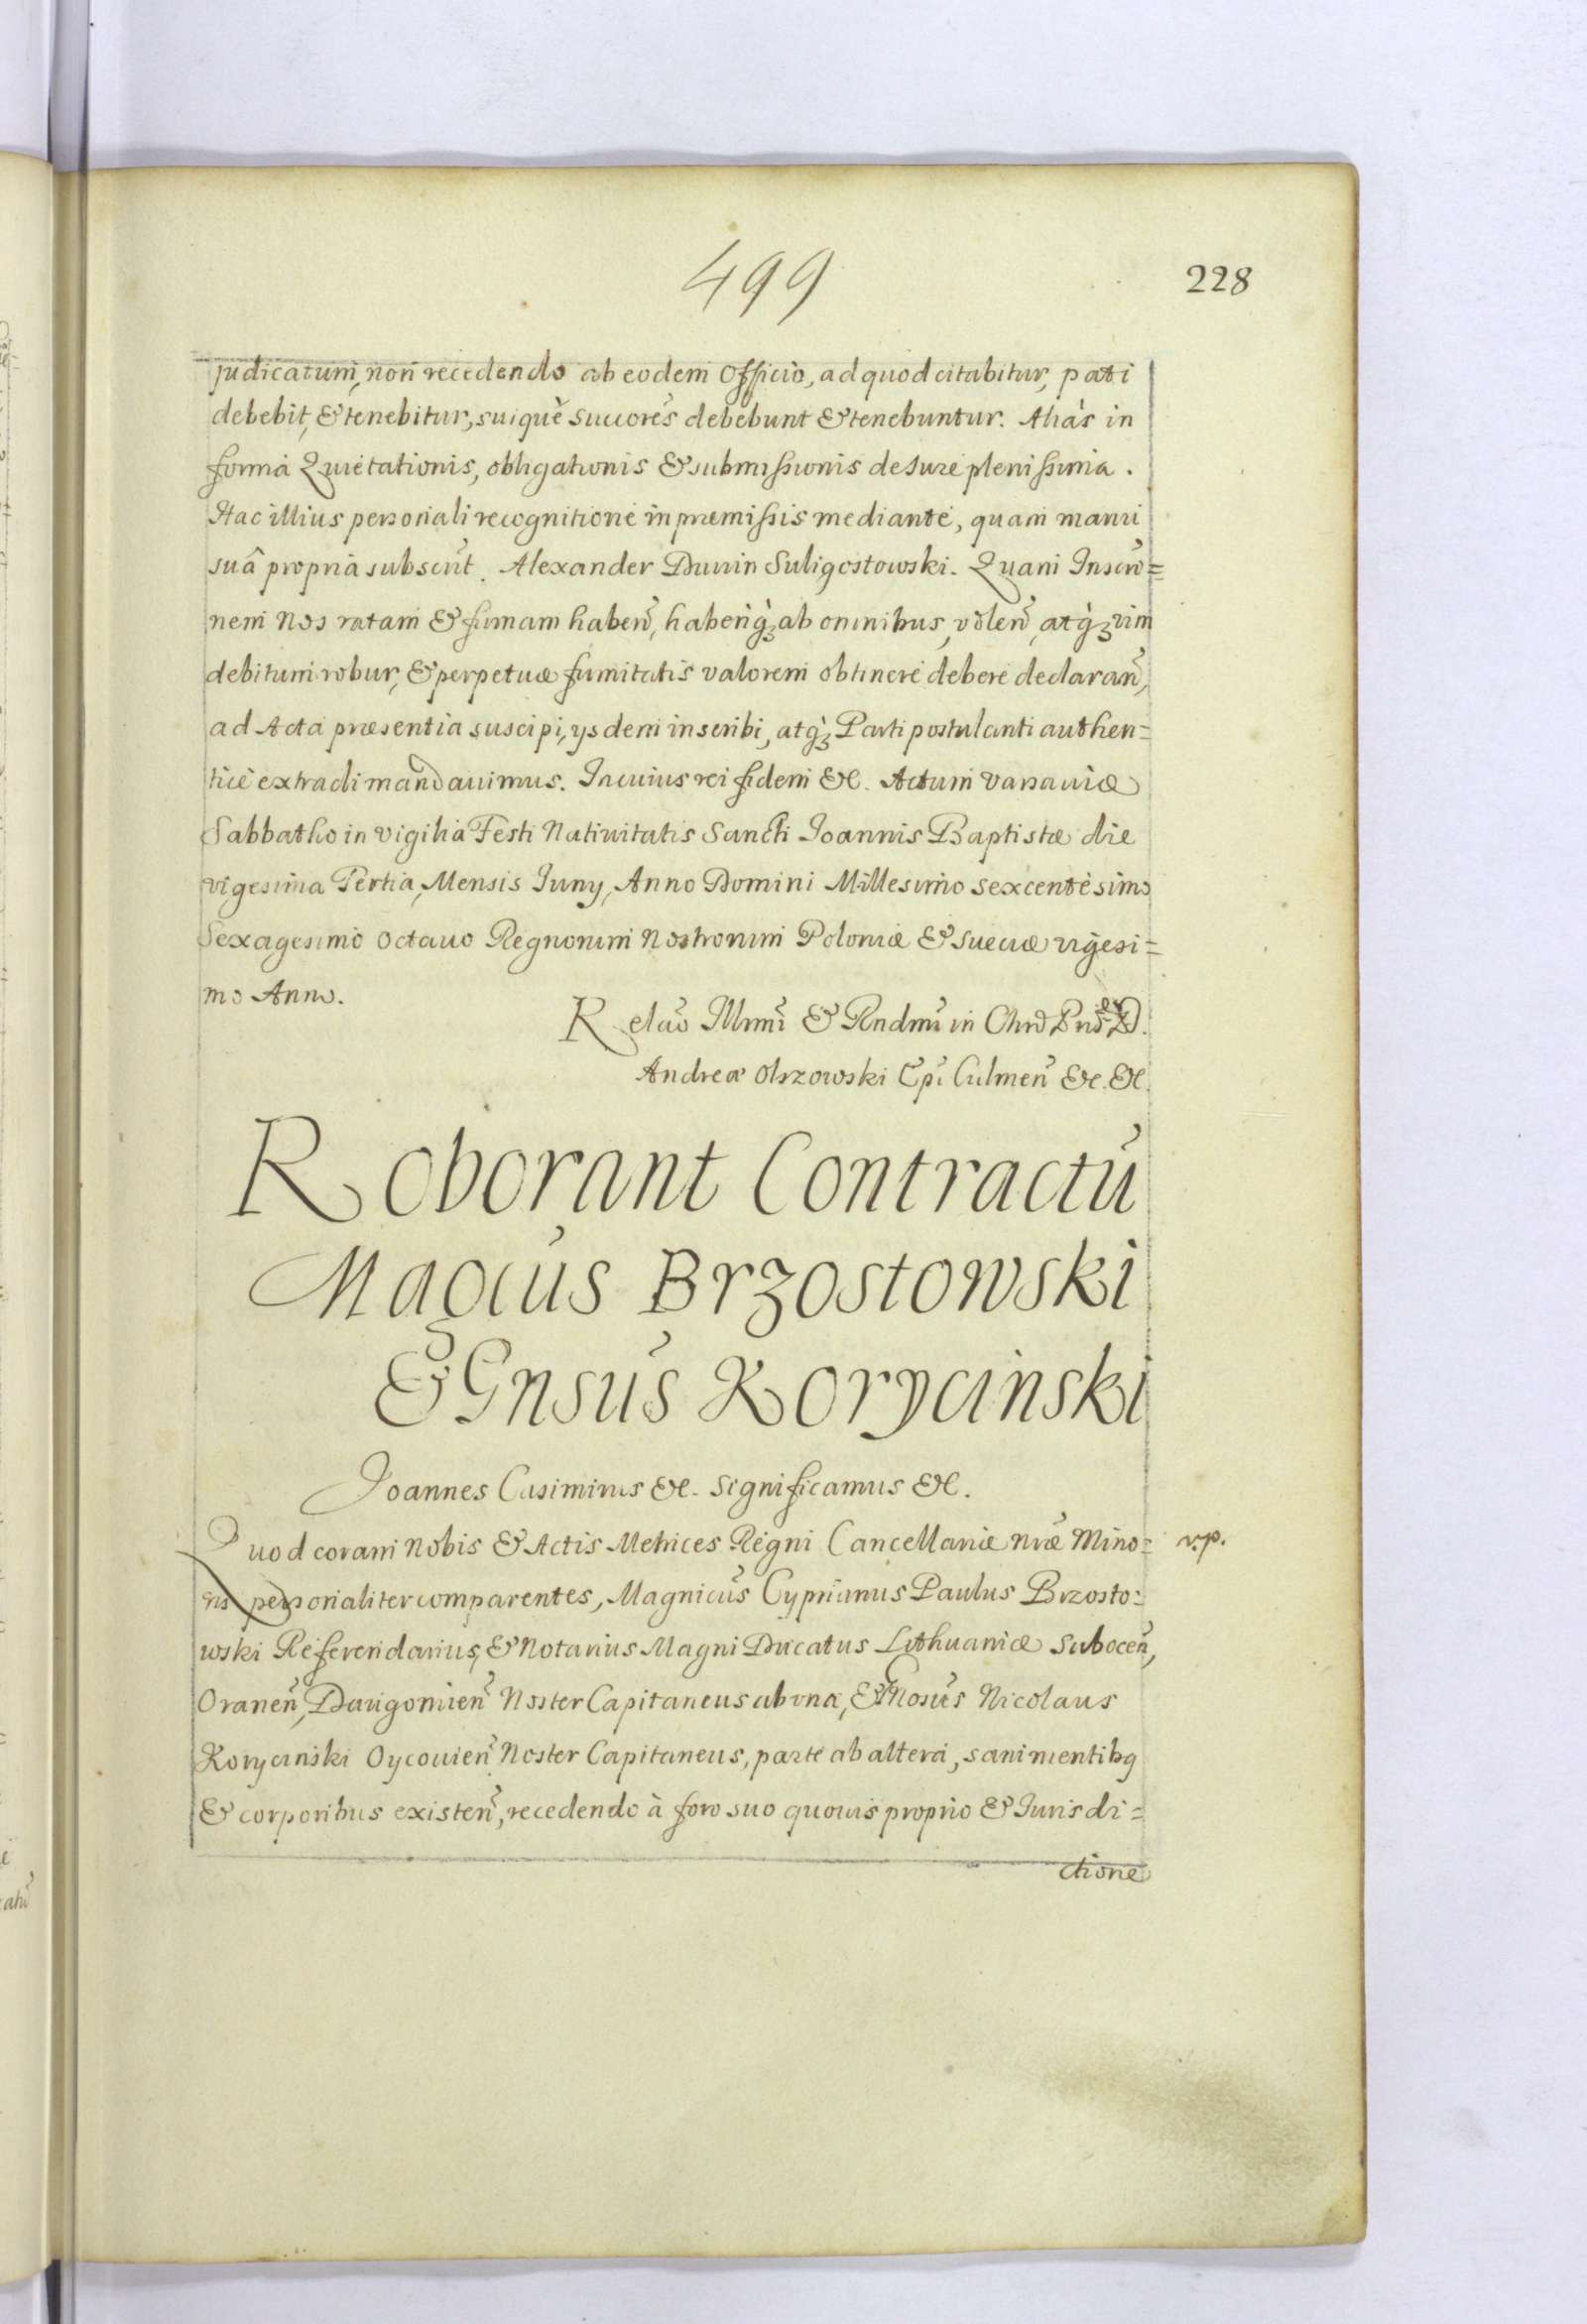 499
228
judicatum, non recedendo ab eodem Officio, ad quod citabitur, pati
debebit, & tenebitur, suiquè Succores debebunt & tenebuntur. Aliàs in
formâ Quietationis, obligationis & submissionis de Iure plenissima.
Hac illius personali recognitione in præmissis mediante, quam manu
suâ propria subscrit. Alexander Dunin Suligostowski. Quam Inscrio=
nem Nos ratam & firmam haben, habenq̀ ab omnibus, volen, atq̀ vim
debitum robur, & perpetuæ firmitatis valorem obtinere debere declaran,
ad Acta præsentia suscipi, ysdem inscribi, atq̀ Parti postulanti authen=
ticè extradi mandauimus. In cuius rei fidem &c. Actum Varsauiæ
Sabbatho in vigilia Festi Natiuitatis Sancti Joannis Baptistæ die
vigesima Tertia, Mensis Juny, Anno Domini Millesimo Sexcentesimo
Sexagesimo Octauo Regnorum Nostrorum Poloniæ & Sueciæ vigesi=
mo Anno.
Relao Illmi & Rndmi in Chro Pris D.
Andreæ Olszowski Epi Culmen &c. &c.
Roborant Contractu
Magcus Brzostowski
& Gnsus Korycinski
Joannes Casimirus &c. Significamus &c.
Quod coram Nobis & Actis Metrices Regni Cancellariæ Nræ Mino=
v.p.
ris personaliter comparentes, Magnicus Cyprianus Paulus Brzosto=
wski Referendarius, & Notarius Magni Ducatus Lithuaniæ Subocen,
Oranen, Daugomien Noster Capitaneus ab vna, & Gnosus Nicolaus
Korycinski Oycouien Noster Capitaneus, parte ab altera, sani mentibq
& corporibus existen, recedendo à foro suo quouis proprio & Iurisdi=
ctione